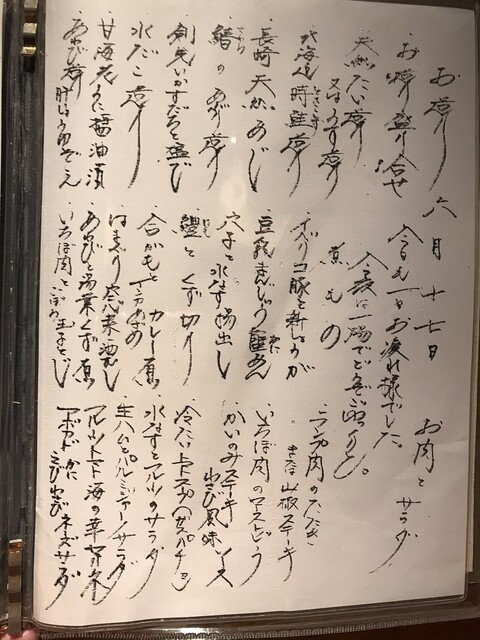 六月十七日
今日も一日お疲れ様でした。
お造り
お造り盛り合せ
天然たい造り
又はうす造り
北海道 時鮭造り
長崎 天然あじ
鰆のあぶり造り
剣先いかすだちと塩で
水だこ造り
甘海老みそ醤油漬
あわび造り 肝しょうゆぞえ
煮もの
イベリコ豚と新しょうが
豆乳まんじゅう 蟹あん
穴子と水なす揚出し
鱧とくず切り
合がもと丁字めぶの カレー煮
はまぐり 菜 酒むし
あわびと湯葉くず煮
いちぼ肉とごぼう 玉子とじ
お肉とサラダ
肉のたたき
または 山椒ステーキ
いちぼ肉のローストビーフ
かいのみステーキ
わさび風味ソース
冷たいトマトスープ(ガスパチョ)
水なすとフルーツのサラダ
生ハムとパルミジャーノサラダ
フルーツトマト 海の幸
アボカド かに
えびわさびマヨネーズサラダ